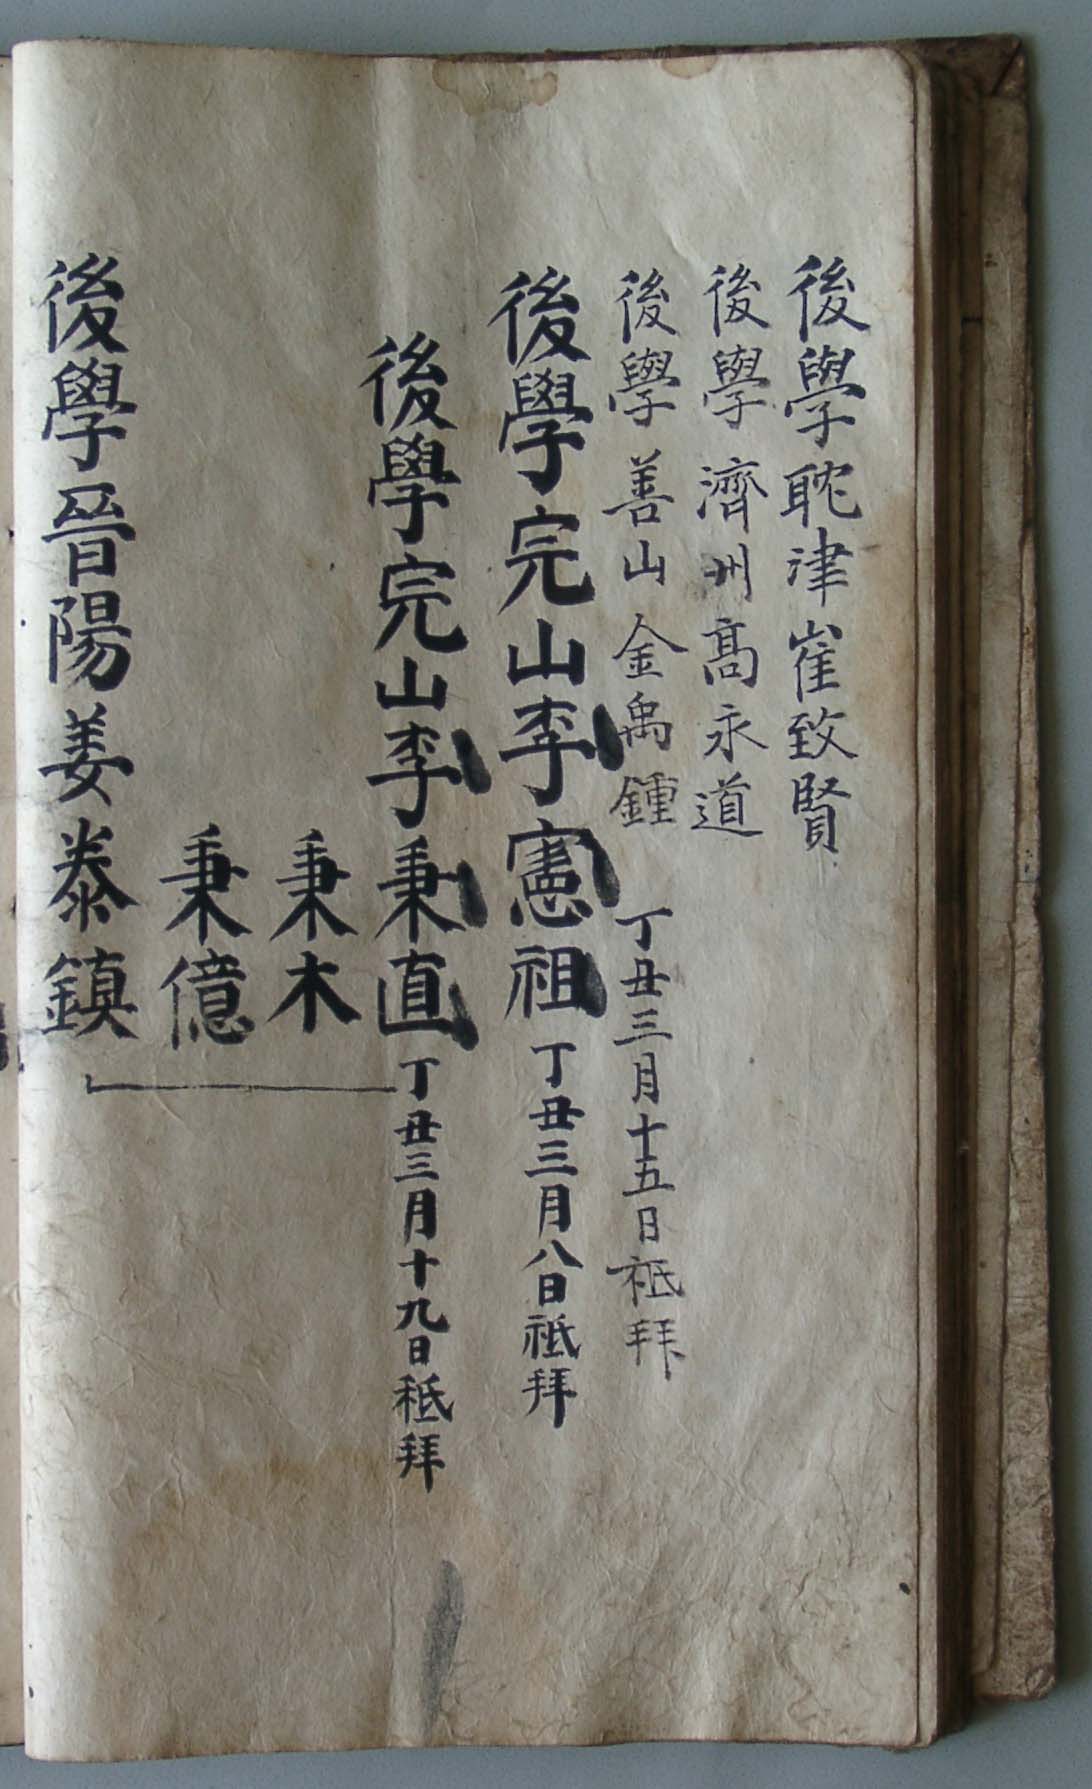 後學耽津崔致賢
後學濟州髙永道
後學善山金禹鍾 丁丑三月十五日祗拜
後學完山李憲祖 丁丑三月八日祗拜
後學完山李秉直 丁丑三月十九日祗拜
秉木
秉億
後學晉陽姜泰鎮